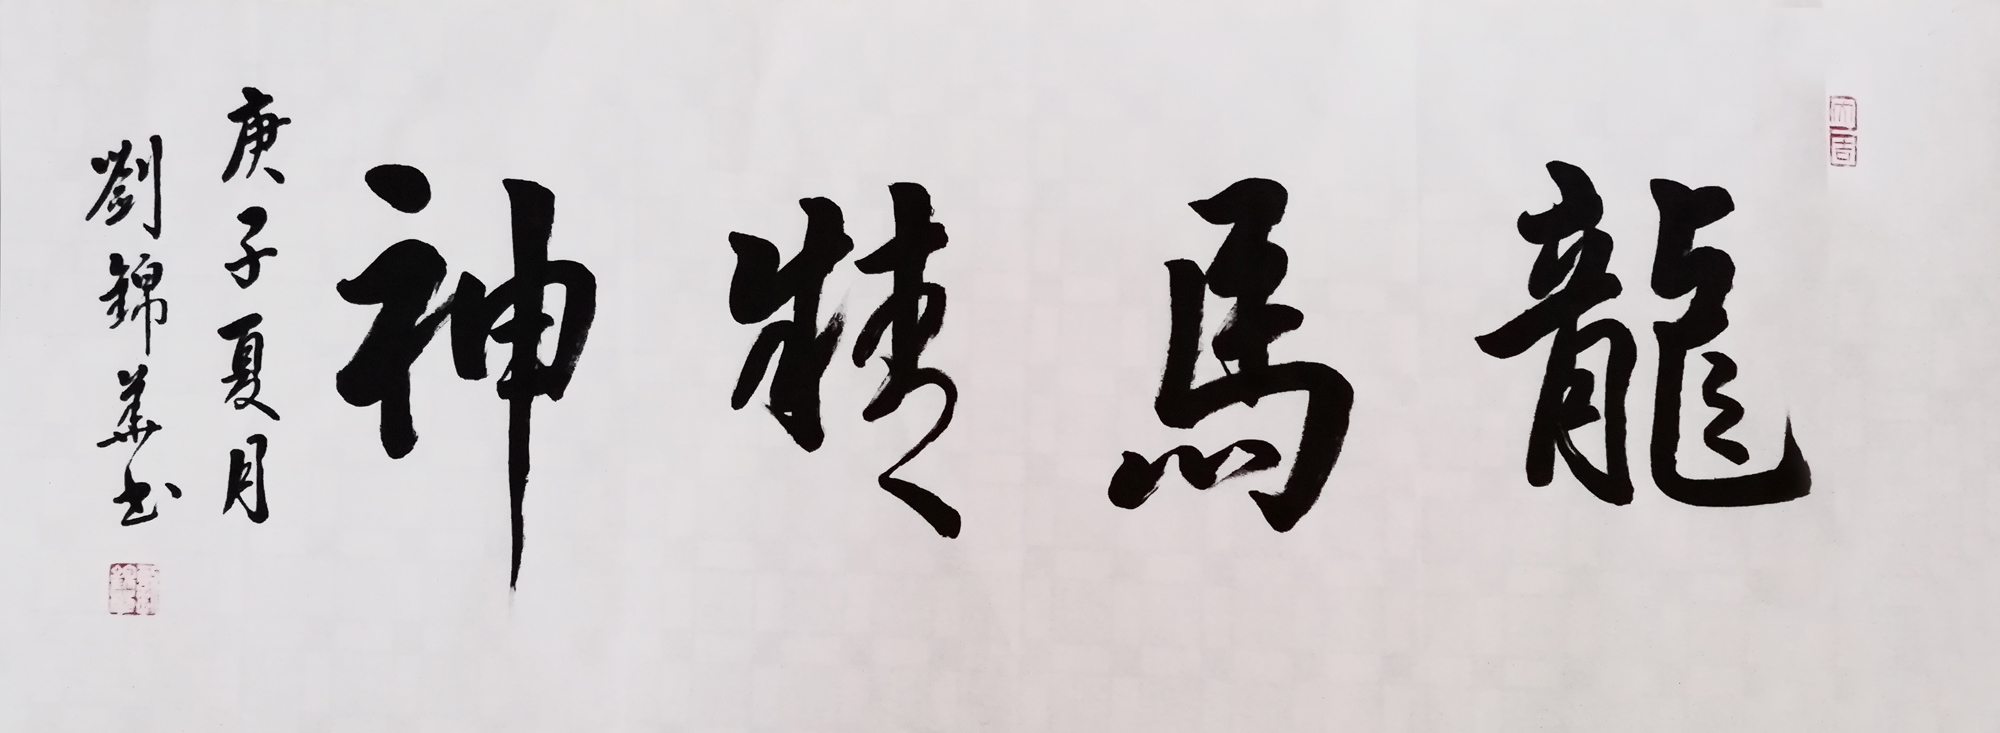 龍馬精神
庚子夏月
劉錦華书